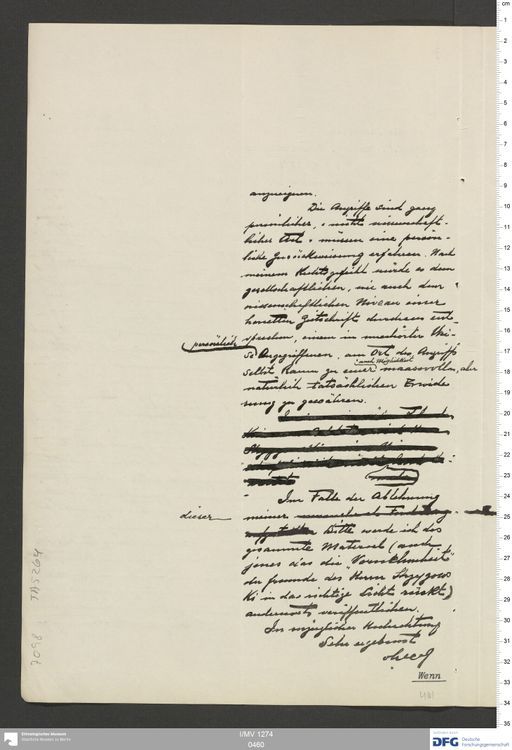 anzueignen.
Die Angriffe sind ganz
persönlicher, nicht wissenschaft-
licher Art u. müssen eine persön-
liche Zurückweisung erfahren. Nach
meinem Rechtsgefühl würde es dem
gesellschaftlichen, wie auch dem
wissenschaftlichen Niveau einer
honetten Zeitschrift durchaus ent
sprechen, einem in unerhörter Wei-
persönlich
se Angegriffenen, am Ort des Angriffs
und Möglichkeit
selbst Raum zu einer maasvollen, aber
natürlich tatsächlichen Erwide
rung zu gewähren.
Im Falle der Ablehnung
dieser
meiner
Bitte werde ich das
gesammte Material (auch
jenes das die "Vornehmheit"
der Freunde des Herrn Strzygows
ki in das richtige Licht rückt)
anderenorts veröffentlichen.
In vorzüglicher Hochachtung
Sehr ergebenst
Wenn
TA5264
7098
I/MV 1274
0460
Ethnologisches Museum
Staatliche Museen zu Berlin
DFG Deutsche
Forschungsgemeinschaft